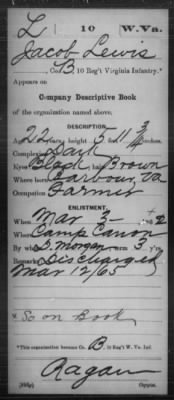 L | 10 | W. Va.
Jacob Lewis
, Co. B, 10 Reg't Virginia Infantry.*
Appears on
Company Descriptive Book
of the organization named above.
DESCRIPTION.
Age 22 years; height 5 feet 11 3/4 inches.
Complexion Dark
Eyes Black; hair Brown
Where born Barbour, Va
Occupation Farmer
ENLISTMENT.
When Mar 3, 1862
Where Camp Canon
By S. Morgan; term 3 y'rs.
Remarks: Discharged
Mar 12/65
So on Book
*This organization became Co. B, 10 Reg't W. Va. Inf.
Ragan
Copyist.